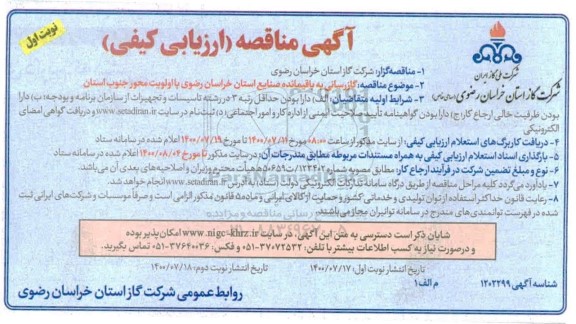 نوبت اول
آگهی مناقصه (ارزیابی کیفی)
شرکت ملی گاز ایران
شرکت گاز استان خراسان رضوی (سهامی خاص)
۱- مناقصه‌گزار: شرکت گاز استان خراسان رضوی
۲- موضوع مناقصه: گازرسانی به باقیمانده صنایع استان خراسان رضوی با اولویت محور جنوب استان
۳- شرایط اولیه متقاضیان: الف) دارا بودن حداقل رتبه ۳ در رشته تاسیسات و تجهیزات از سازمان برنامه و بودجه؛ ب) دارا
بودن ظرفیت خالی ارجاع کار؛ ج) دارا بودن گواهینامه تایید صلاحیت ایمنی از اداره کار و امور اجتماعی؛ د) ثبت‌نام در سایت www.setadiran.ir و دریافت گواهی امضای
الکترونیکی
۴- دریافت کاربرگ‌های استعلام ارزیابی کیفی: از سایت مذکور از ساعت ۰۸:۰۰ تا مورخ ۱۴۰۰/۰۷/۱۹ اعلام شده در سامانه ستاد
۵- بارگذاری اسناد استعلام ارزیابی کیفی به همراه مستندات مربوطه مطابق مندرجات آن: در سایت مذکور تا مورخ ۱۴۰۰/۰۸/۰۴ اعلام شده در سامانه ستاد
۶- نوع و مبلغ تضمین شرکت در فرآیند ارجاع کار: مطابق مصوبه شماره ۱۲۳۴۰۲/ت۵۰۶۵۹ه هیات محترم وزیران و اصلاحیه‌های بعدی آن می‌باشد.
۷- یادآور می‌گردد کلیه مراحل مناقصه از طریق درگاه سامانه تدارکات الکترونیکی دولت (ستاد) به آدرس www.setadiran.ir انجام خواهد شد.
۸- رعایت قانون حداکثر استفاده از توان تولیدی و خدماتی کشور و حمایت از کالای ایرانی و ماده ۵ قانون مذکور الزامی است و صرفاً موسسات و شرکت‌های ایرانی ثبت
شده در فهرست توانمندی‌های مندرج در سامانه توانیران مجاز می‌باشند.
شایان ذکر است دسترسی به متن این آگهی، در سایت www.nigc-khrz.ir امکان‌پذیر بوده
و در صورت نیاز به کسب اطلاعات بیشتر با تلفن: ۳۷۰۷۲۵۳۲-۰۵۱ و فکس: ۳۷۶۴۰۰۳۶-۰۵۱ تماس بگیرید.
تاریخ انتشار نوبت اول: ۱۴۰۰/۰۷/۱۷ تاریخ انتشار نوبت دوم: ۱۴۰۰/۰۷/۱۸
شناسه آگهی ۱۲۰۳۲۹۹ م الف ۱
روابط عمومی شرکت گاز استان خراسان رضوی